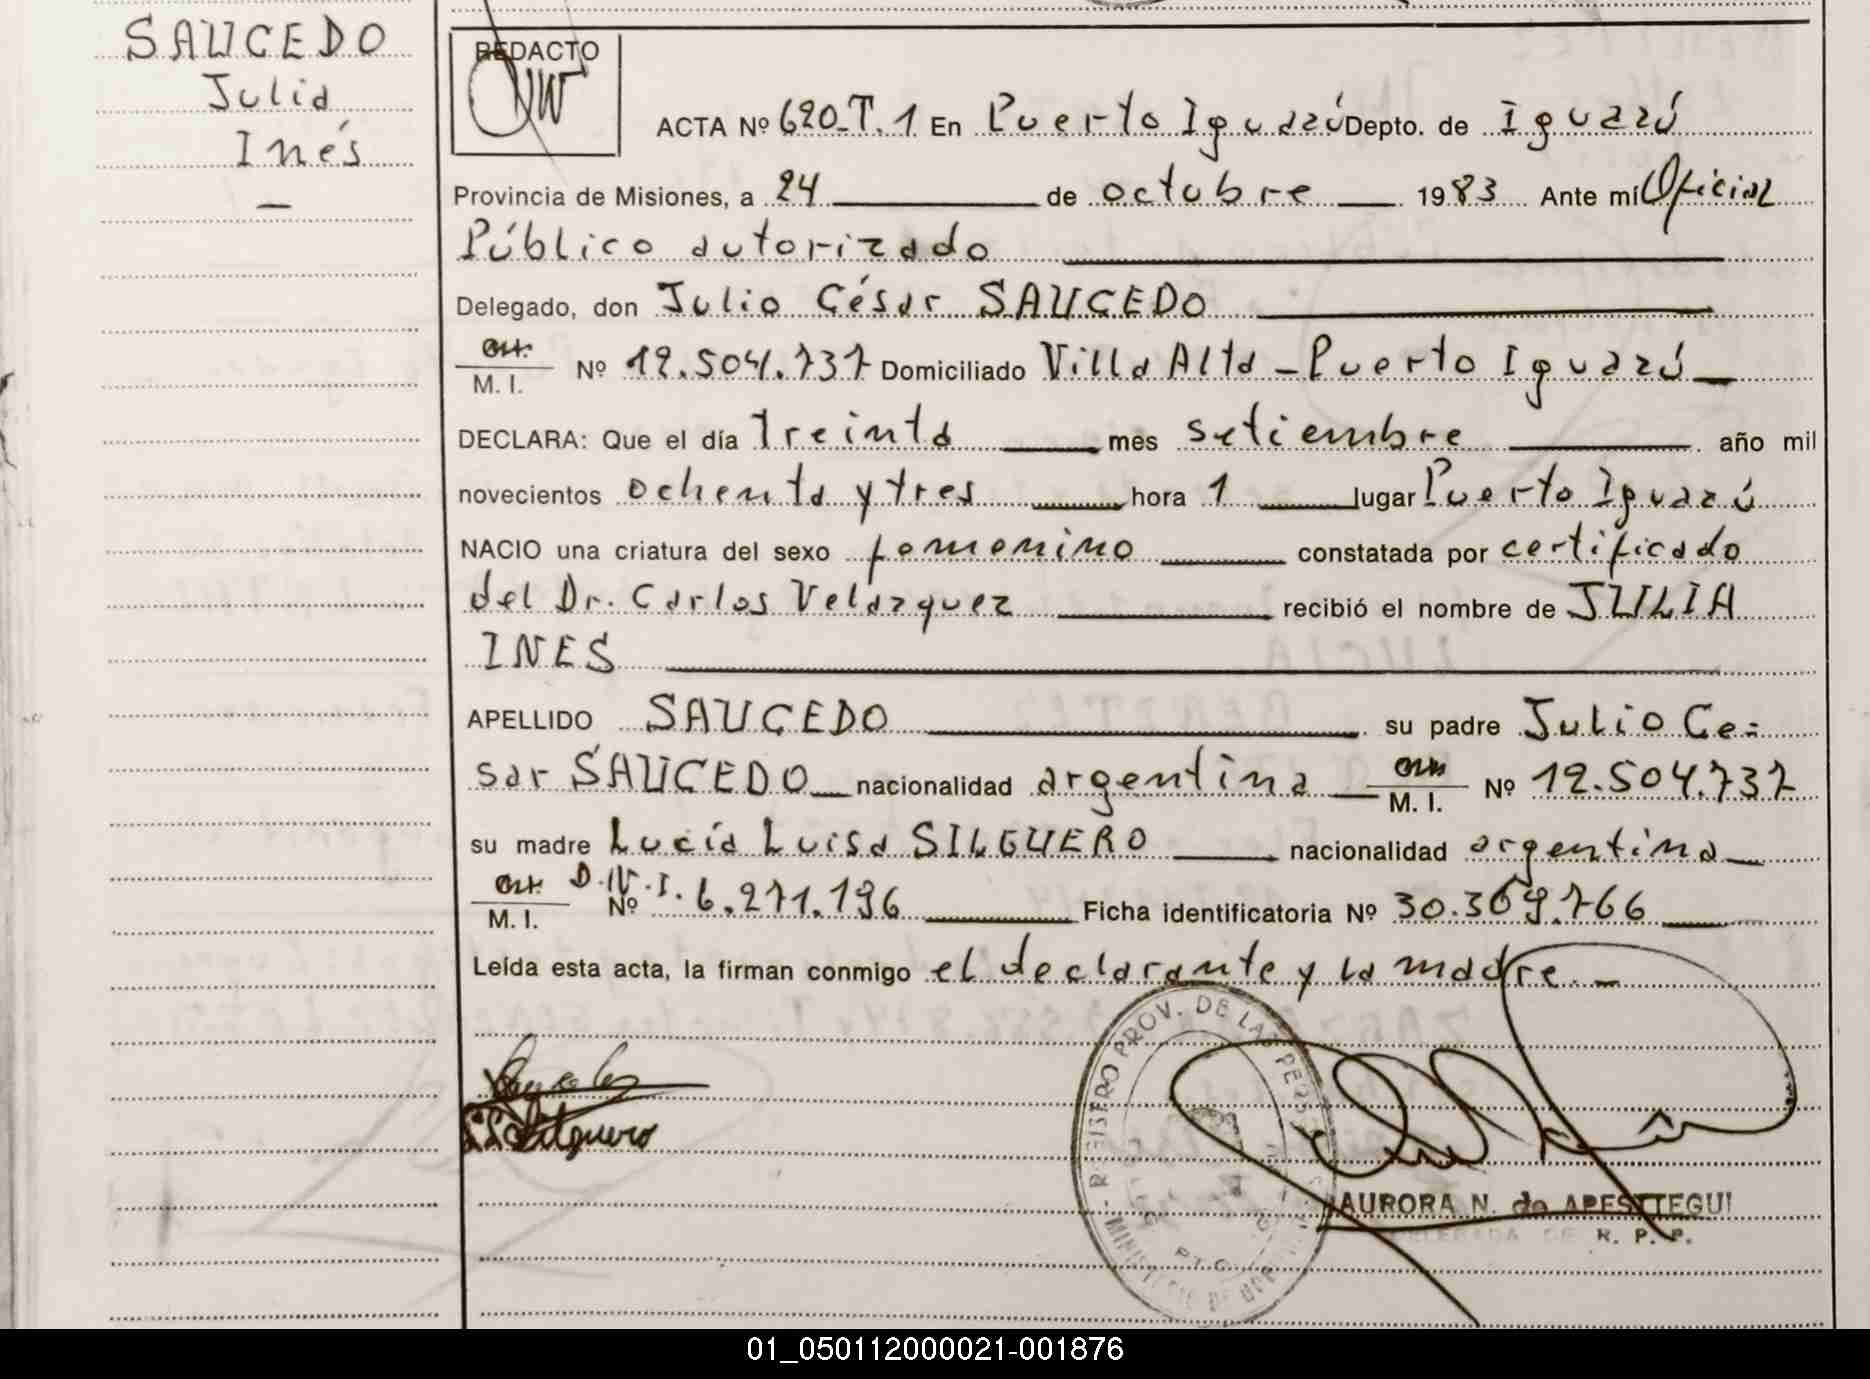 SAUCEDO
Julia
Inés
—
REDACTO
ACTA Nº 620-T.1 En Puerto Iguazú Depto. de Iguazú
Provincia de Misiones, a 24 de octubre 1983 Ante mí Oficial
Público autorizado
Delegado, don Julio César SAUCEDO
M. I. Nº 12.504.737 Domiciliado Villa Alta - Puerto Iguazú
DECLARA: Que el día treinta mes setiembre año mil
novecientos ochenta y tres hora 1 lugar Puerto Iguazú
NACIO una criatura del sexo femenino constatada por certificado
del Dr. Carlos Velazquez recibió el nombre de JULIA
INES
APELLIDO SAUCEDO su padre Julio Cé=
sar SAUCEDO nacionalidad argentina M. I. Nº 12.504.737
su madre Lucía Luisa SILGUERO nacionalidad argentina
M. I. D.N.I. Nº 6.271.196 Ficha identificatoria Nº 30.369.766
Leída esta acta, la firman conmigo el declarante y la madre.-
Silguero
REGISTRO PROV. DE LAS PERSONAS
AURORA N. de APESTTEGUI
DELEGADA DE R. P. P.
01_050112000021-001876